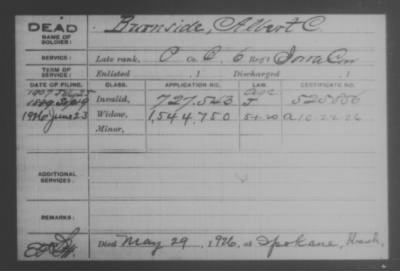 DEAD
NAME OF SOLDIER: Burnside, Albert C
SERVICE: Late rank, P Co. C, 6 Reg't Iowa Cav
TERM OF SERVICE: Enlisted , 1 Discharged , 1
DATE OF FILING. CLASS. APPLICATION NO. LAW. CERTIFICATE NO.
1907
1889 Invalid, 727.543 J 525.856
1926 June 23 Widow, 1,544,750 5-1-20 A10-22-26
Minor,
ADDITIONAL SERVICES:
REMARKS:
Died May 29, 1926, at Spokane, Wash.